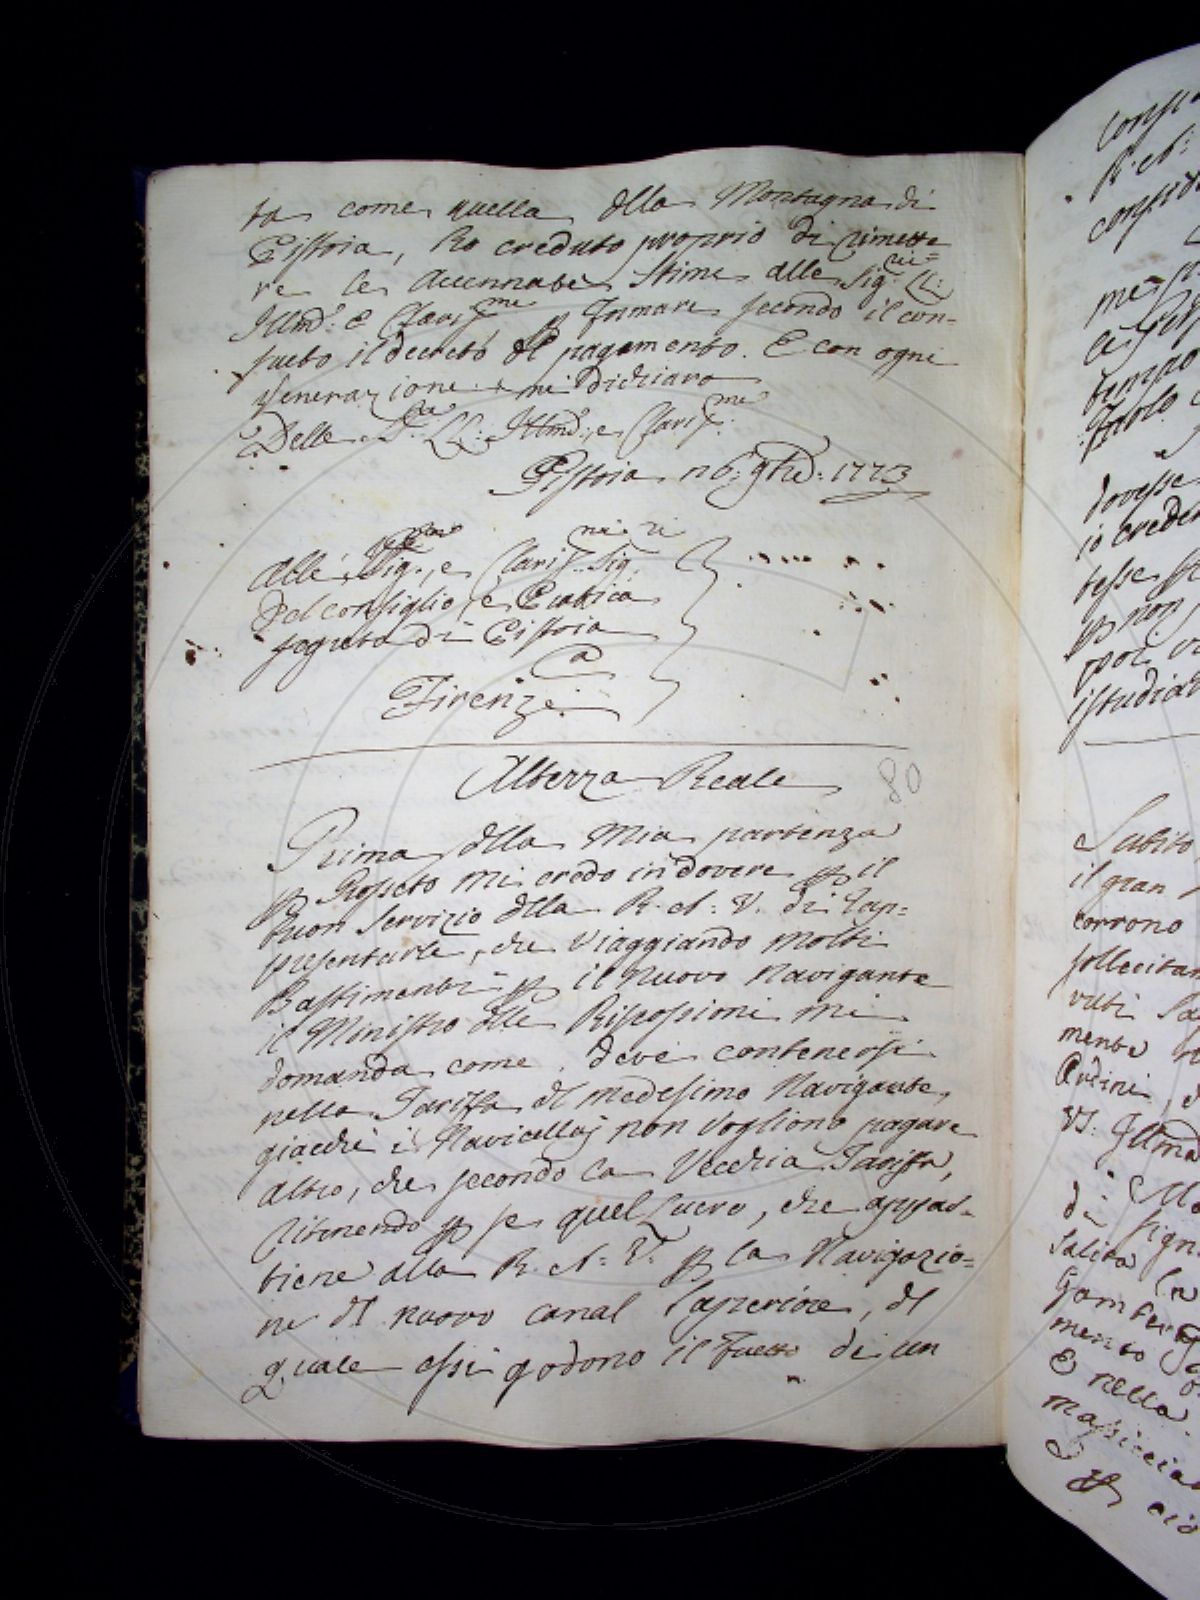 ta come quella dlla Montagna di
Pistoia, ho creduto proprio di rimette
re le accennate stime alle Sig.rie LL:
Illmẽ: e Clariss.me p formare secondo il con-
sueto il decreto dl pagamento. E con ogni
venerazione mi dichiaro
Delle S.rie LL: Illmẽ: e Clariss.me
Pistoia 9bre: 1773
Alli Sig., e Clariss.mi Sig.ri
Del consiglio, e Pratica
segreta di Pistoia
a
Firenze
Altezza Reale
80
Prima dlla mia partenza
p Roseto mi credo in dovere p il
buon servizio dlla R. A: V. di rap-
presentarle, che viaggiando molti
Bastimenti p il nuovo navigante
il Ministro dlle Riscossioni mi
domanda come deve contenersi
nella Tariffa dl medesimo Navigante,
giacchè i Navicellaj non vogliono pagare
altro, che secondo la Vecchia Tariffa,
ritenendo p se quel Lucro, che appar-
tiene alla R. A: V. p la Navigazio-
ne dl nuovo canal Superiore, dl
quale essi godono il frutto di un
consi
R. A:
tempo
dovesse
io creder
tesse
p non
poi
istudiar
Subito
il gran
corrono
sollecitam
mente
Ordini
VS: Illma
di
Salita
mento
E nella
massicciat
p ciò